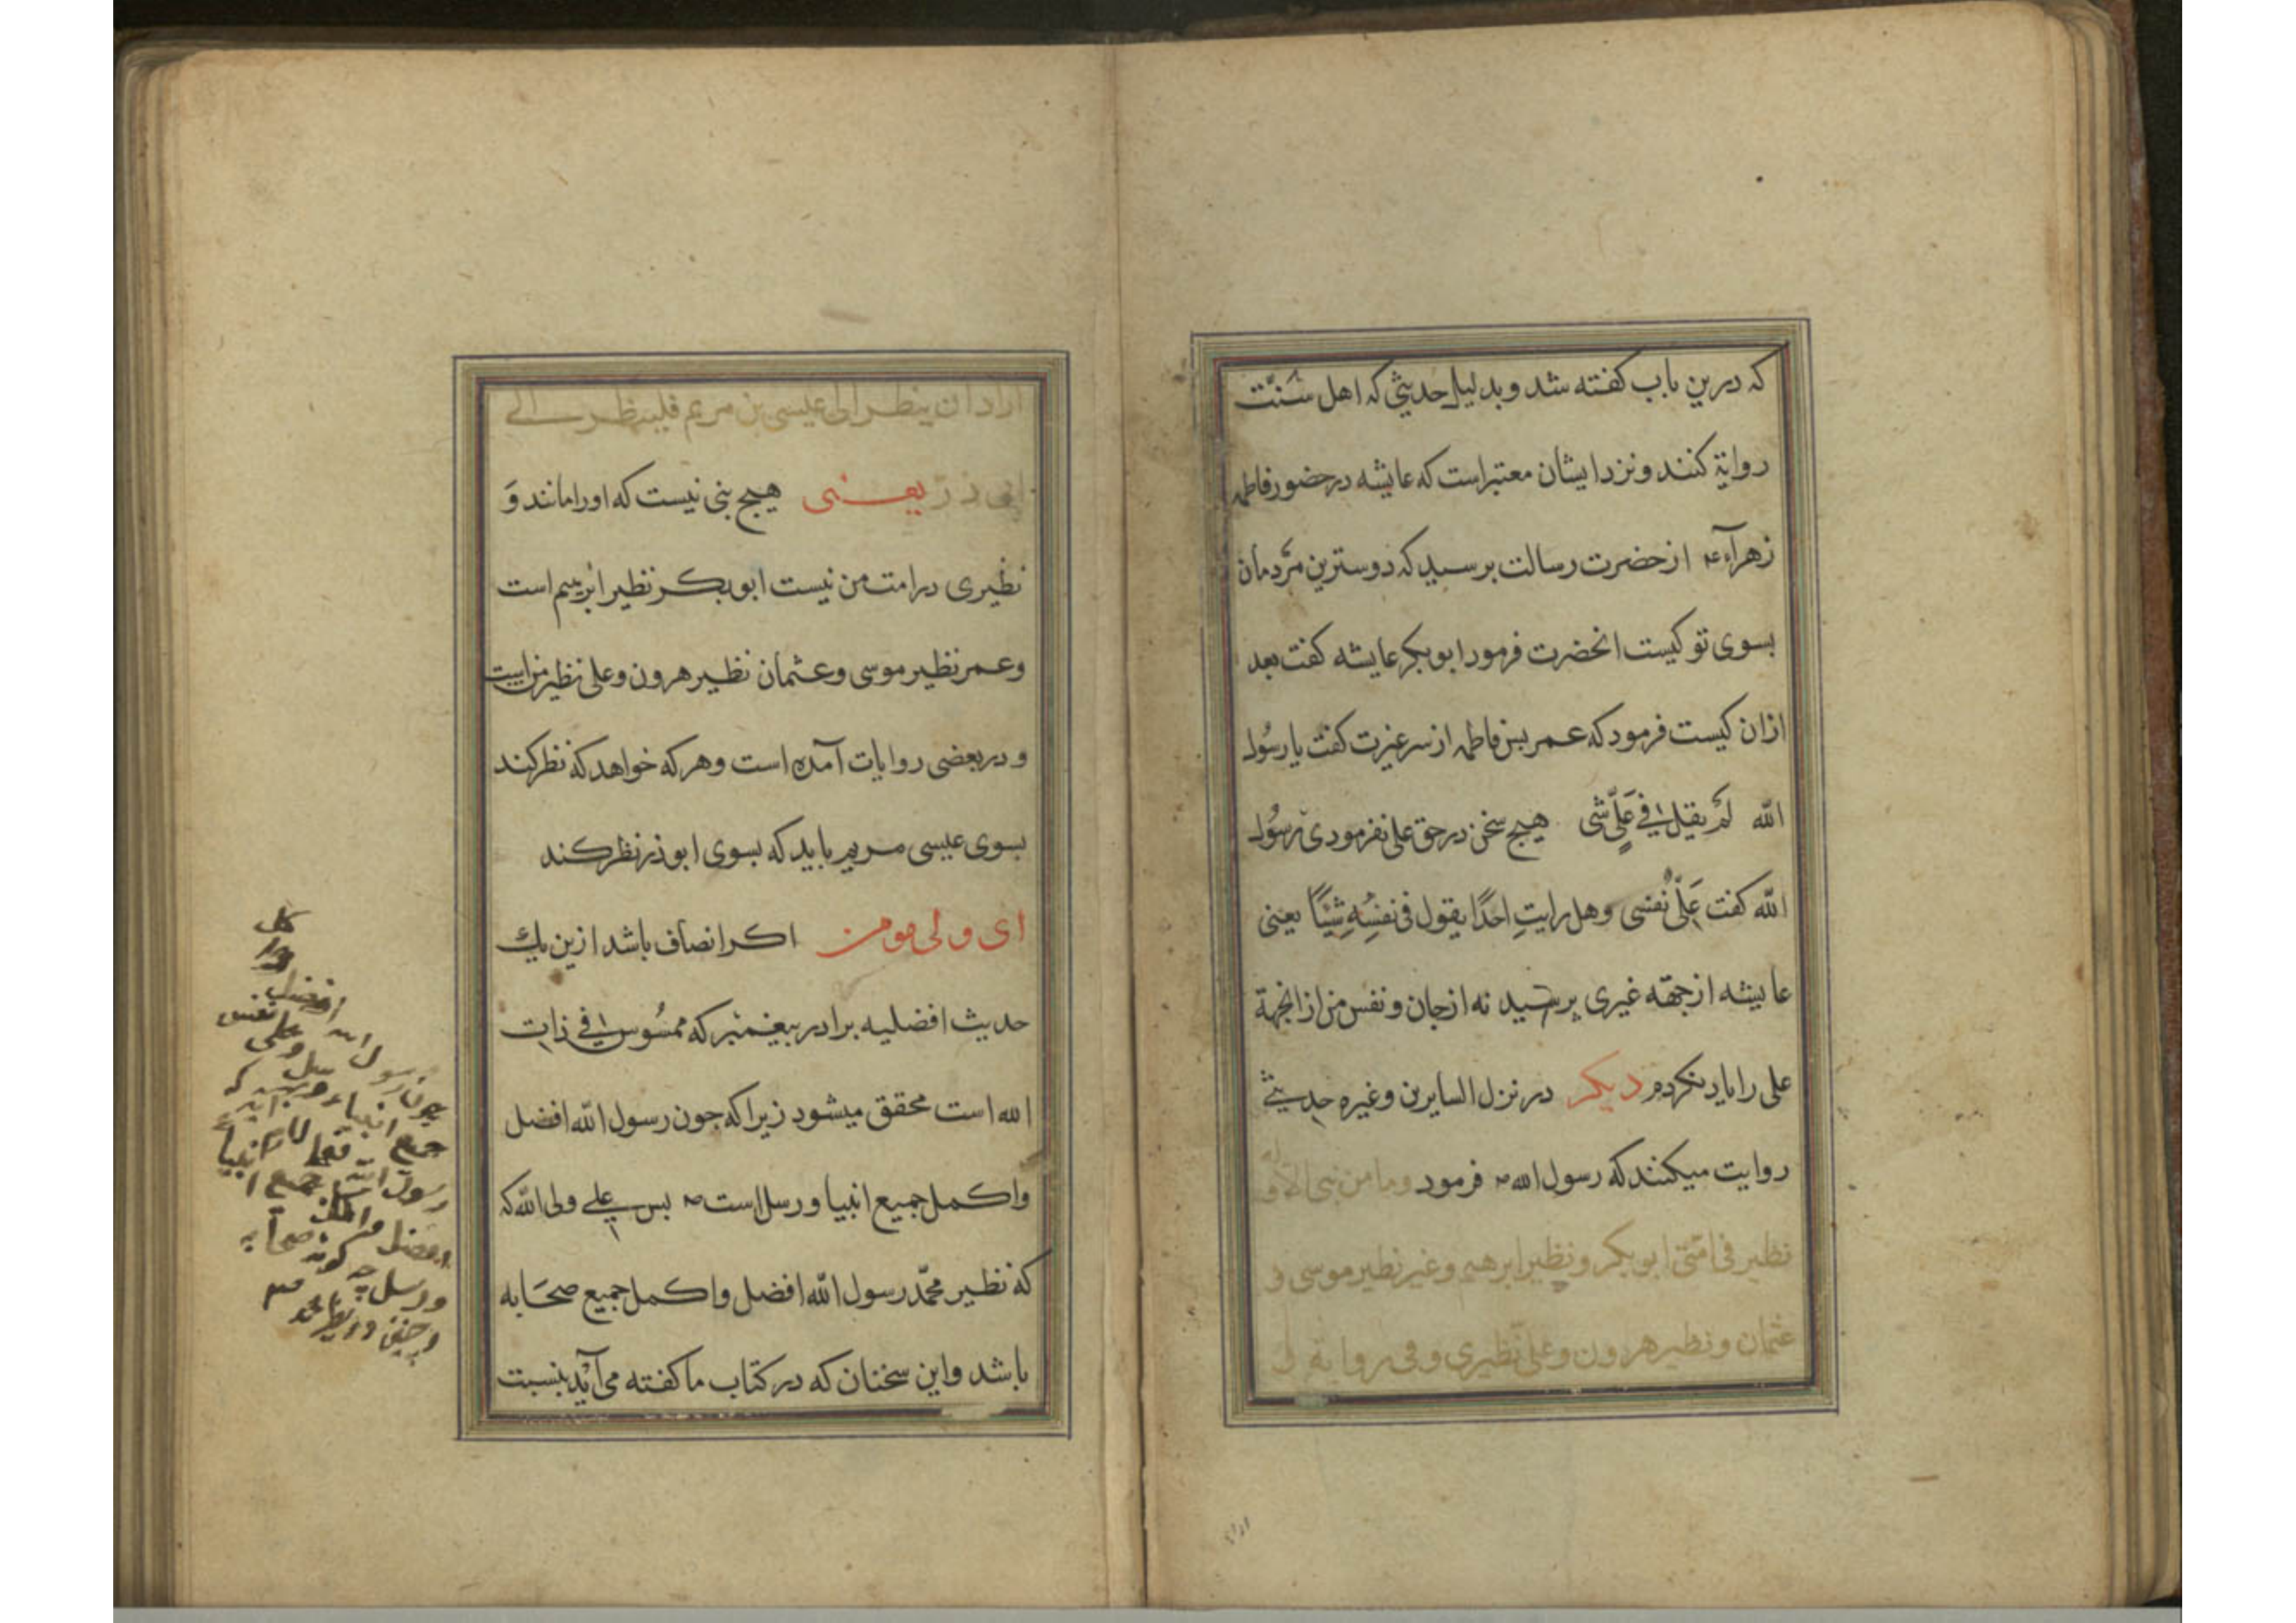 که درین باب کفته شد و بدلیل حدیثی که اهل سنّت
روایة کنند و نزد ایشان معتبر است که عایشه در حضور فاطمه
زهراء از حضرت رسالت برسید که دوسترین مردمان
بسوی تو کیست انحضرت فرمود ابوبکر عایشه کفت بعد
ازان کیست فرمود که عمر بس فاطمه از سر غیرت کفت یا رسول
الله لم یقل فی علیٍّ شی هیچ سخن در حق علی نفرمودی رسول
الله کفت علیّ نفسی و هل رایتِ احدًا یقول فی نفسِهِ شیئًا یعنی
عایشه از جهة غیری پرسید نه از جان و نفس من از انجهة
علی را یاد نکردم دیکر در نزل السایرین و غیره حدیثی
روایت میکنند که رسول الله فرمود وما من نبی الا و
نظیر فی امّتی ابوبکر و نظیر ابرهیم و غیر نظیر موسی و
عثمان و نظیر هرون و علیّ نظیری و فی روایة
اراد ان ینظر الی عیسی بن مریم فلینظر الی
ابی ذر یعنی هیچ بنی نیست که اورا مانند وَ
نظیری در امت من نیست ابوبکر نظیر ابرهیم است
وعمر نظیر موسی و عثمان نظیر هرون و علی نظیر من است
و در بعضی روایات آمده است و هر که خواهد که نظر کند
بسوی عیسی مریم باید که بسوی ابوذر نظر کند
ای ولی مومن اکر انصاف باشد ازین یك
حدیث افضلیه برادر بیغمبر که ممسُوس فی ذات
الله است محقق میشود زیرا که جون رسول الله افضل
و اکمل جمیع انبیا و رسل است بس علی ولی الله که
که نظیر محمّد رسول الله افضل و اکمل جمیع صحَابه
باشد و این سخنان که در کتاب ما کفته می آید بنسبت
کل
افضل
جون رسول الله
جمع انبیاء و